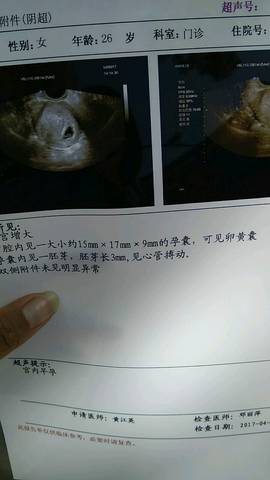 超声号:
附件(阴超)
性别:女 年龄:26 岁 科室:门诊 住院号:
所见:
宫增大
腔内见一大小约15mm×17mm×9mm的孕囊，可见卵黄囊
孕囊内见一胚芽，胚芽长3mm,见心管搏动.
双侧附件未见明显异常
超声提示:
宫内早孕
申请医师: 黄江英 检查医师: 邓丽萍
检查日期: 2017-04-
此报告单仅供临床参考，必要时请复查.